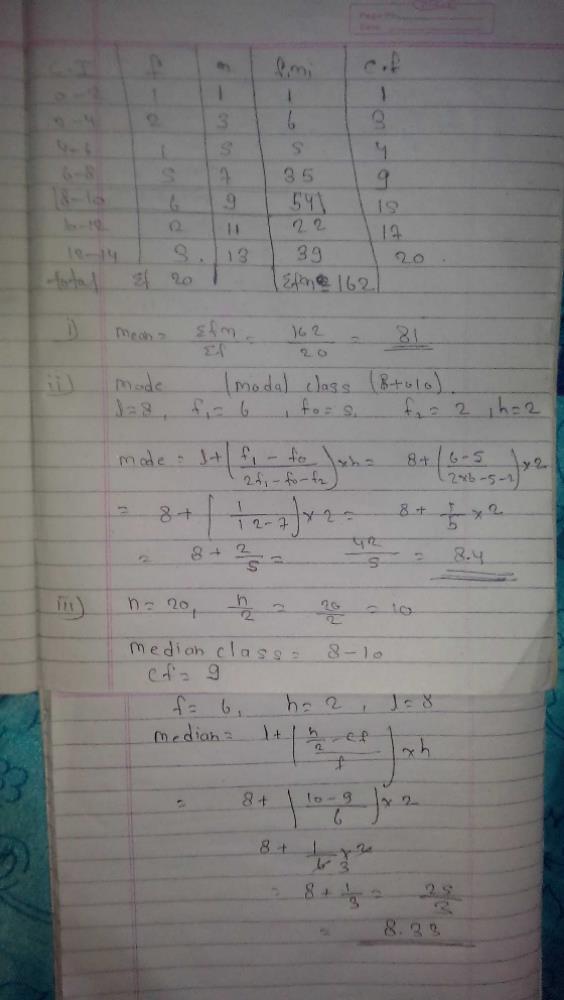 C.I f x f.mi c.f
0-2 1 1 1 1
2-4 2 3 6 3
4-6 1 5 5 4
6-8 5 7 35 9
8-10 6 9 54 15
10-12 2 11 22 17
12-14 3. 13 39 20.
total Σf 20 Σfm = 162
i) mean = Σfm/Σf = 162/20 = 81
ii) mode (modal class (8to10).
l=8, f₁=6, f₀=5, f₂=2, h=2
mode = l+(f₁-f₀/2f₁-f₀-f₂)×h = 8+(6-5/2×6-5-2)×2
= 8+[1/12-7]×2 = 8+1/5×2
= 8+2/5 = 42/5 = 8.4
iii) n=20, n/2 = 20/2 = 10
median class = 8-10
cf = 9
f=6, h=2, l=8
median = l+(n/2-cf/f)×h
= 8+(10-9/6)×2
8+1/6×2 3
= 8+1/3 = 25/3
= 8.33